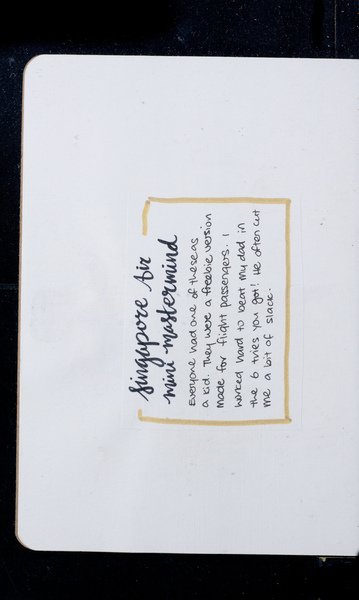 Singapore Air
mini mastermind
Everyone had one of these as
a kid. They were a freebie version
made for flight passengers. I
worked hard to beat my dad in
the 6 tries you got! He often cut
me a bit of slack.